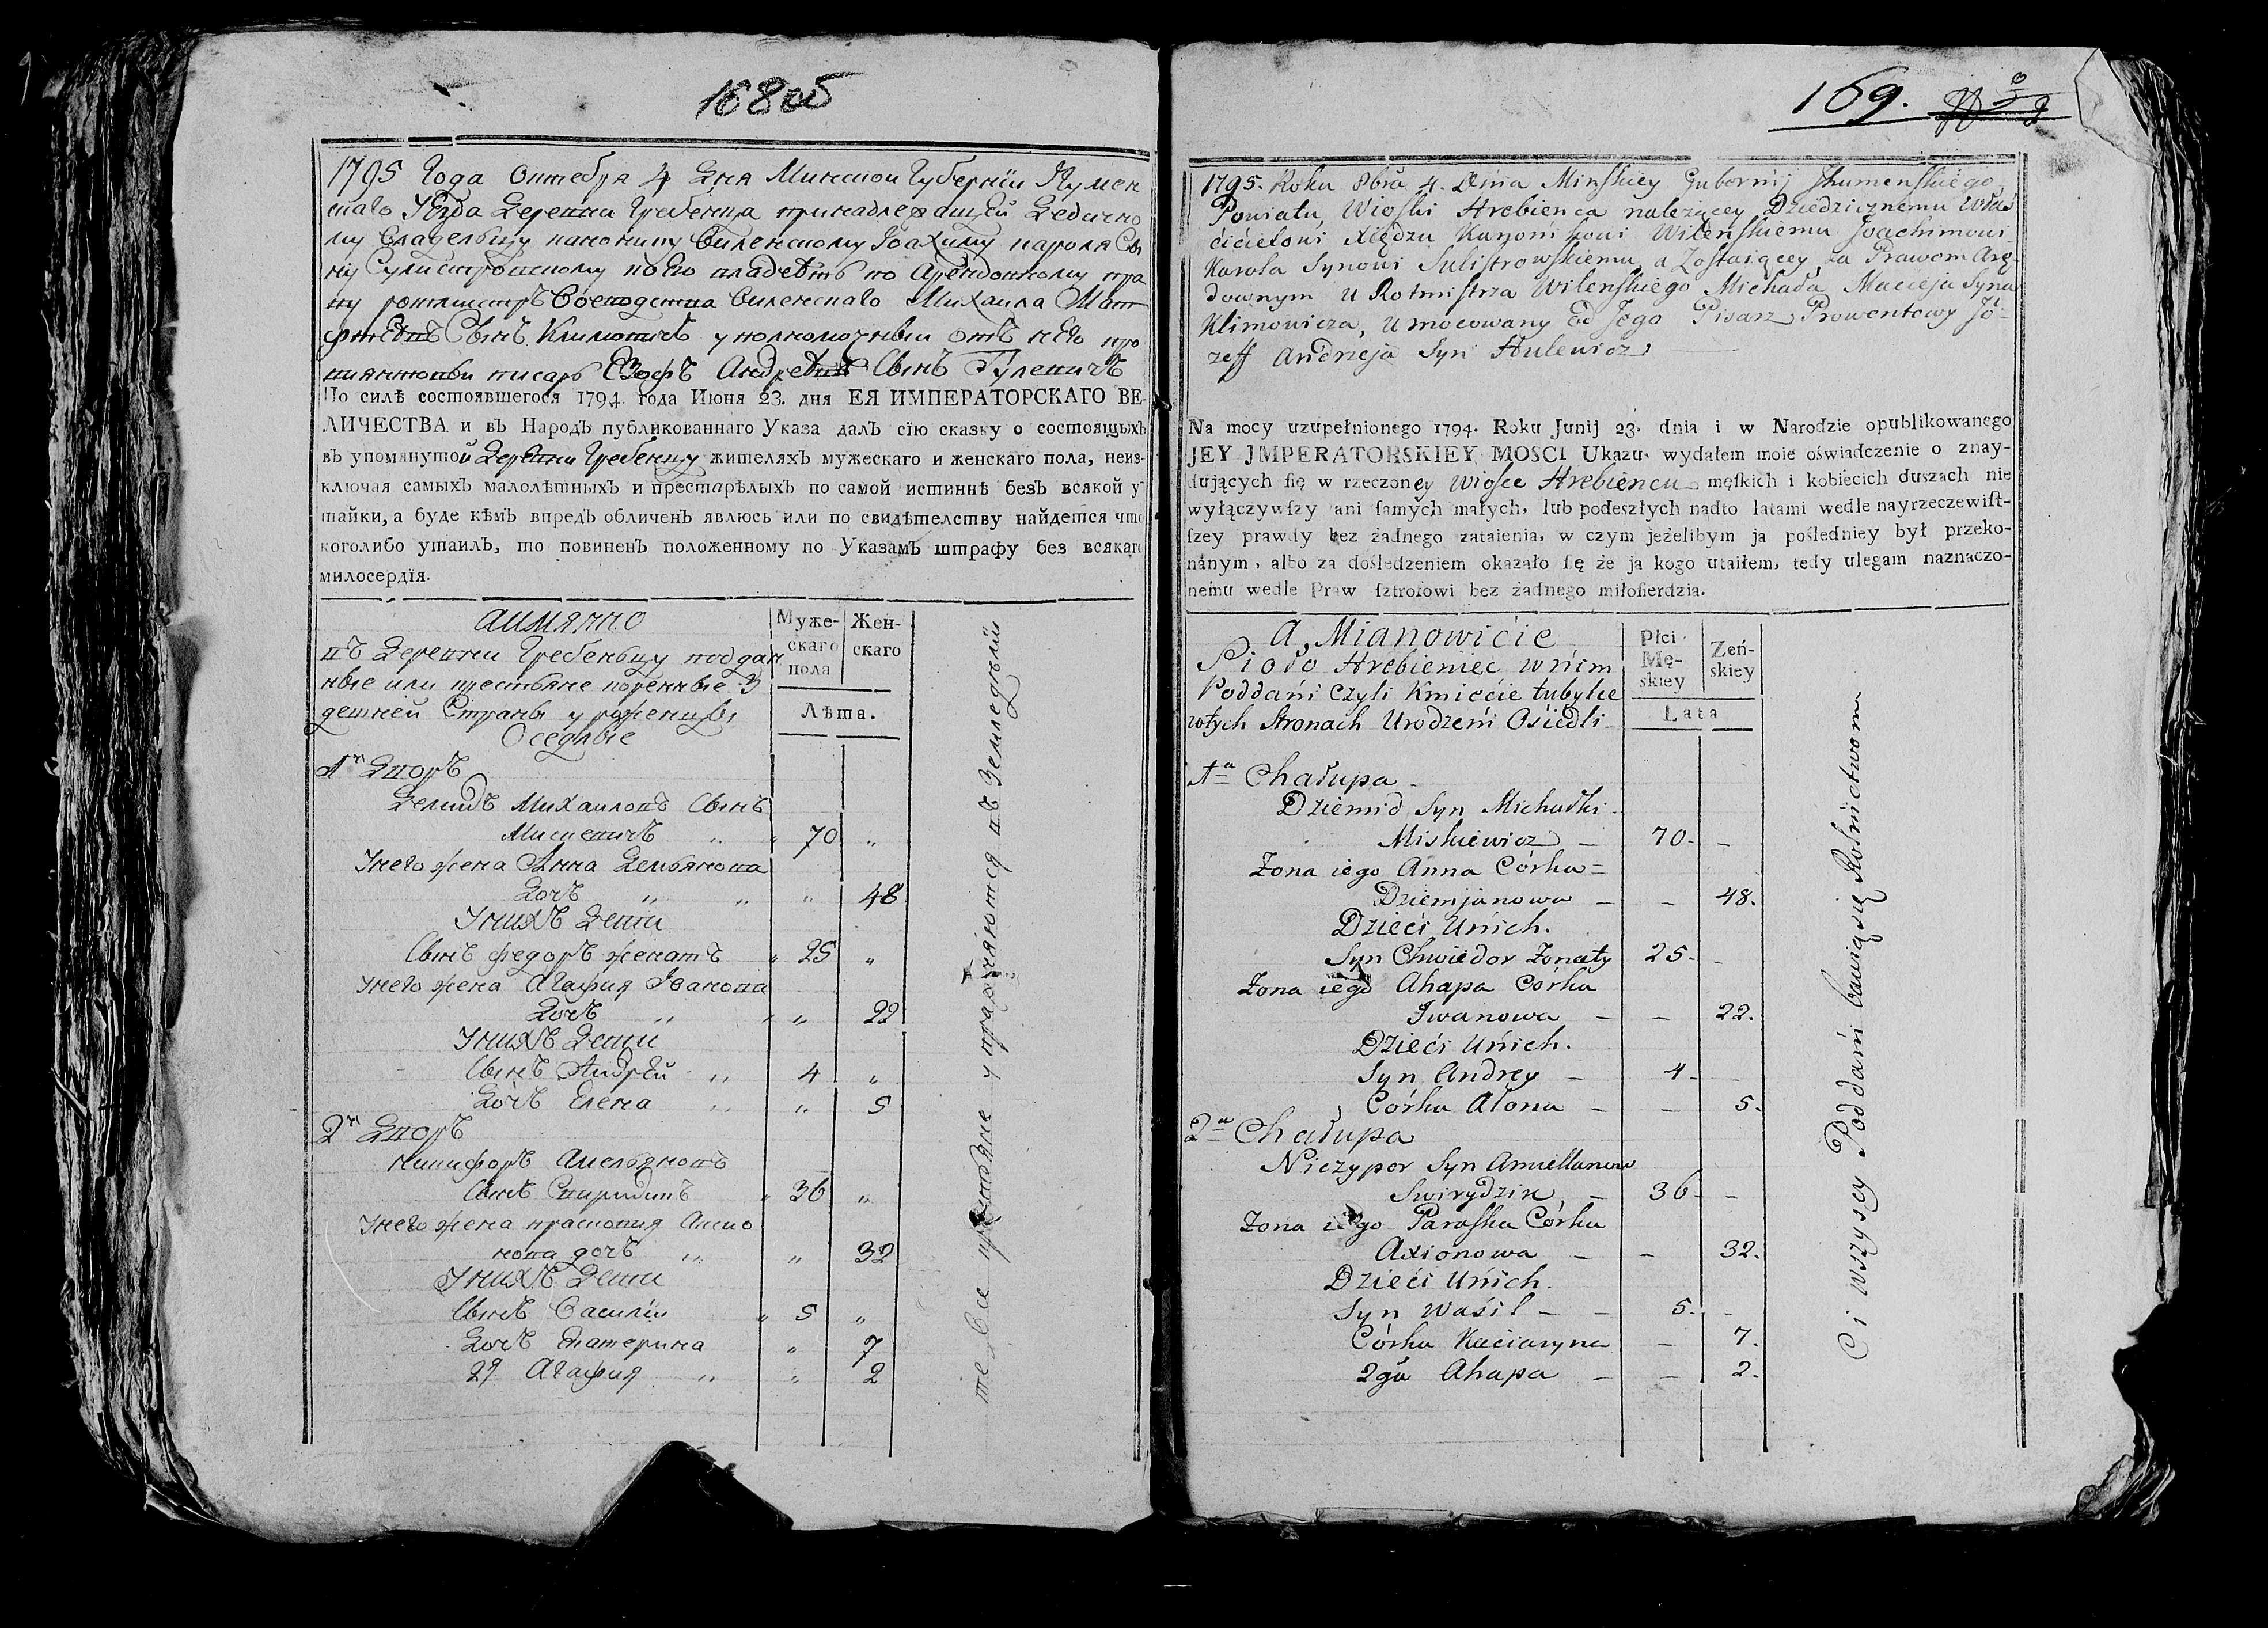 168 об
1795 Года Октебря 4 Дня Минской Губернїи Игумен
скаго Уезда Деревни Гребенца принадлежащей Дедично
му Владельцу канонику Виленскому Іоахиму кароля Сы
ну Сулистровскому
ротмистръ Виленскаго Михаила
Сынъ Климовичъ уполномочный отъ него про
писарь Езофъ Андреевъ Сынъ Гулевичъ
По силѣ состоявшегося 1794. года Июня 23. дня ЕЯ ИМПЕРАТОРСКАГО ВЕ-
ЛИЧЕСТВА и въ Народъ публикованнаго Указа далъ сїю сказку о состоящыхъ
въ упомянутой Деревни Гребенцу жителяхъ мужескаго и женскаго пола, неиз-
ключая самыхъ малолѣтныхъ и престарѣлыхъ по самой истиннѣ безъ всякой у-
тайки, а буде кѣмъ впредъ обличенъ явлюсь или по свидѣтелству найдется что
коголибо утаилъ, то повиненъ положенному по Указамъ штрафу без всякаго
милосердїя.
аимянно
въ Деревни Гребеньцу поддан
ные или крестьяне коренные З
детней Страны уроженцы
Оседлые
Муже-
скаго
пола
Жен-
скаго
Лѣта.
1й Дворъ
Демидъ Михаловъ Сынъ
Мискевичъ " " 70 "
Унего жена Анна Демьянова
Дочь " " " 48
Унихъ Дети
Сынъ Федоръ женатъ " 25 "
Унего жена Агафия Іванова
Дочь " " " 22
Унихъ Дети
Сынъ Андрей " 4 "
Дочь Елена " " 5
2й Дворъ
Никифоръ Амельяновъ
Сынъ Спиридинъ " 36 "
Унего жена прасковия Аксио
нова дочь " " 32
Унихъ Дети
Сынъ Василїи " 5 "
Дочь Екатерина " 7
2я Агафия " " 2
те Все крестьяне упражняются въ Земледелїи
169.
1795. Roku 8bra 4. Dnia Minskiey Gubernij Jhumenskiego
Powiatu, Wioski Hrebienca należącey Dziedzicznemu Właś
ćicielowi Xiędzu Kanonikowi Wilenskiemu Joachimowi
Karola Synowi Sulistrowskiemu, a Zostaiącey za Prawem Arę-
downym u Rotmistrza Wilenskiego Michała Macieja Syna
Klimowicza, Umocowany od Jego Pisarz Prowentowy Jó-
zeff Andrzeja Syn Hulewicz
Na mocy uzupełnionego 1794. Roku Junij 23. dnia i w Narodzie opublikowanego
JEY JMPERATORSKIEY MOSCI Ukazu, wydałem moie oświadczenie o znay-
duiących ſię w rzeczoney Wiosce Hrebiencu męſkich i kobiecich duszach nie
wyłączywſzy ani ſamych małych, lub podeszłych nadto latami wedle nayrzeczewiſt-
ſzey prawdy bez żadnego zataienia, w czym jeżelibym ja poślednieу był przeko-
nánym, albo za dośledzeniem okazało ſię że ja kogo utaiłem, tedy ulegam naznaczo-
nemu wedle Praw ſztrofowi bez żadnego miłoſierdzia.
A, Mianowićie
Sioło Hrebieniec wńim
Poddańi Czyli Kmiećie tubylce
wtych Stronach Urodzeńi Osiedli
Płci
Mę-
skiey
Zeń-
skiey
Lata
1a Chałupa
Dziemid Syn Michałki
Miskiewicz – 70 –
Żona iego Anna Córka=
Dziemjanowa – – 48.
Dzieći Unich.
Syn Chwiedor Żonaty 25 –
Żona iego Ahapa Córka
Iwanowa – – 22.
Dzieći Unich.
Syn Andrey – 4 –
Córka Alona – – 5.
2a Chałupa
Niczypor Syn Amiellanow
Swirydzik – 36 –
Żona iego Paraska Córka
Axionowa – – 32.
Dzieći Unich.
Syn Waśil – – 5 –
Córka Kaciaryna – 7.
2ga Ahapa – – 2.
Ci wszyscy Poddańi bawią się Rolnictwem